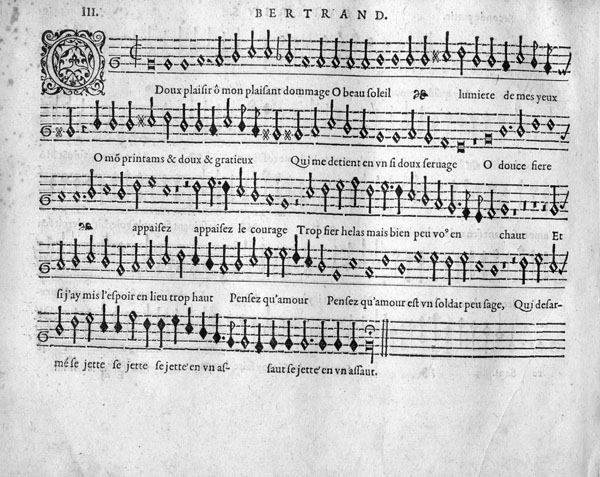 III. BERTRAND.
Doux plaisir ô mon plaisant dommage O beau soleil lumiere de mes yeux
O mõ printams & doux & gratieux Qui me detient en vn si doux seruage O douce fiere
appaisez appaisez le courage Trop fier helas mais bien peu vo⁹ en chaut Et
si j'ay mis l'espoir en lieu trop haut Pensez qu'amour Pensez qu'amour est vn soldat peu sage, Qui desar-
mé se jette se jette se jette en vn as- saut se jette en vn assaut.